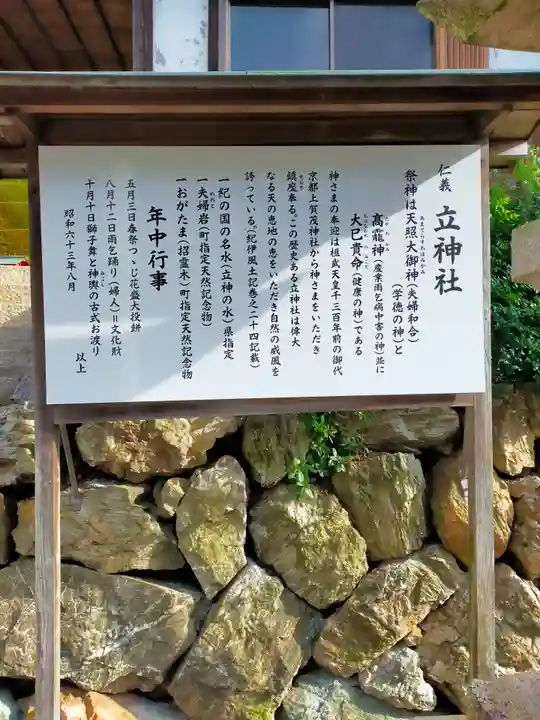 仁義 立神社
祭神は天照大御神(夫婦和合)
あまてらすおほみかみ
(学徳の神)と
高龗神(産業雨乞病虫害の神)並に
大己貴命(健康の神)である
神さまの奉迎は桓武天皇千三百年前の御代
京都上賀茂神社から神さまをいただき
鎮座奉る。この歴史ある立神社は偉大
なる天の恵地の恵をいただき自然の威風を
誇っている(紀伊風土記巻之二十四記載)
一紀の国の名水(立神の水)県指定
一夫婦岩(町指定天然記念物)
めおと
一おがたま(招霊木)町指定天然記念物
年中行事
五月三日春祭つゝじ花盛大投餅
八月十二日雨乞踊り(婦人)=文化財
十月十日獅子舞と神輿の古式お渡り
みこし
以上
昭和六十三年八月